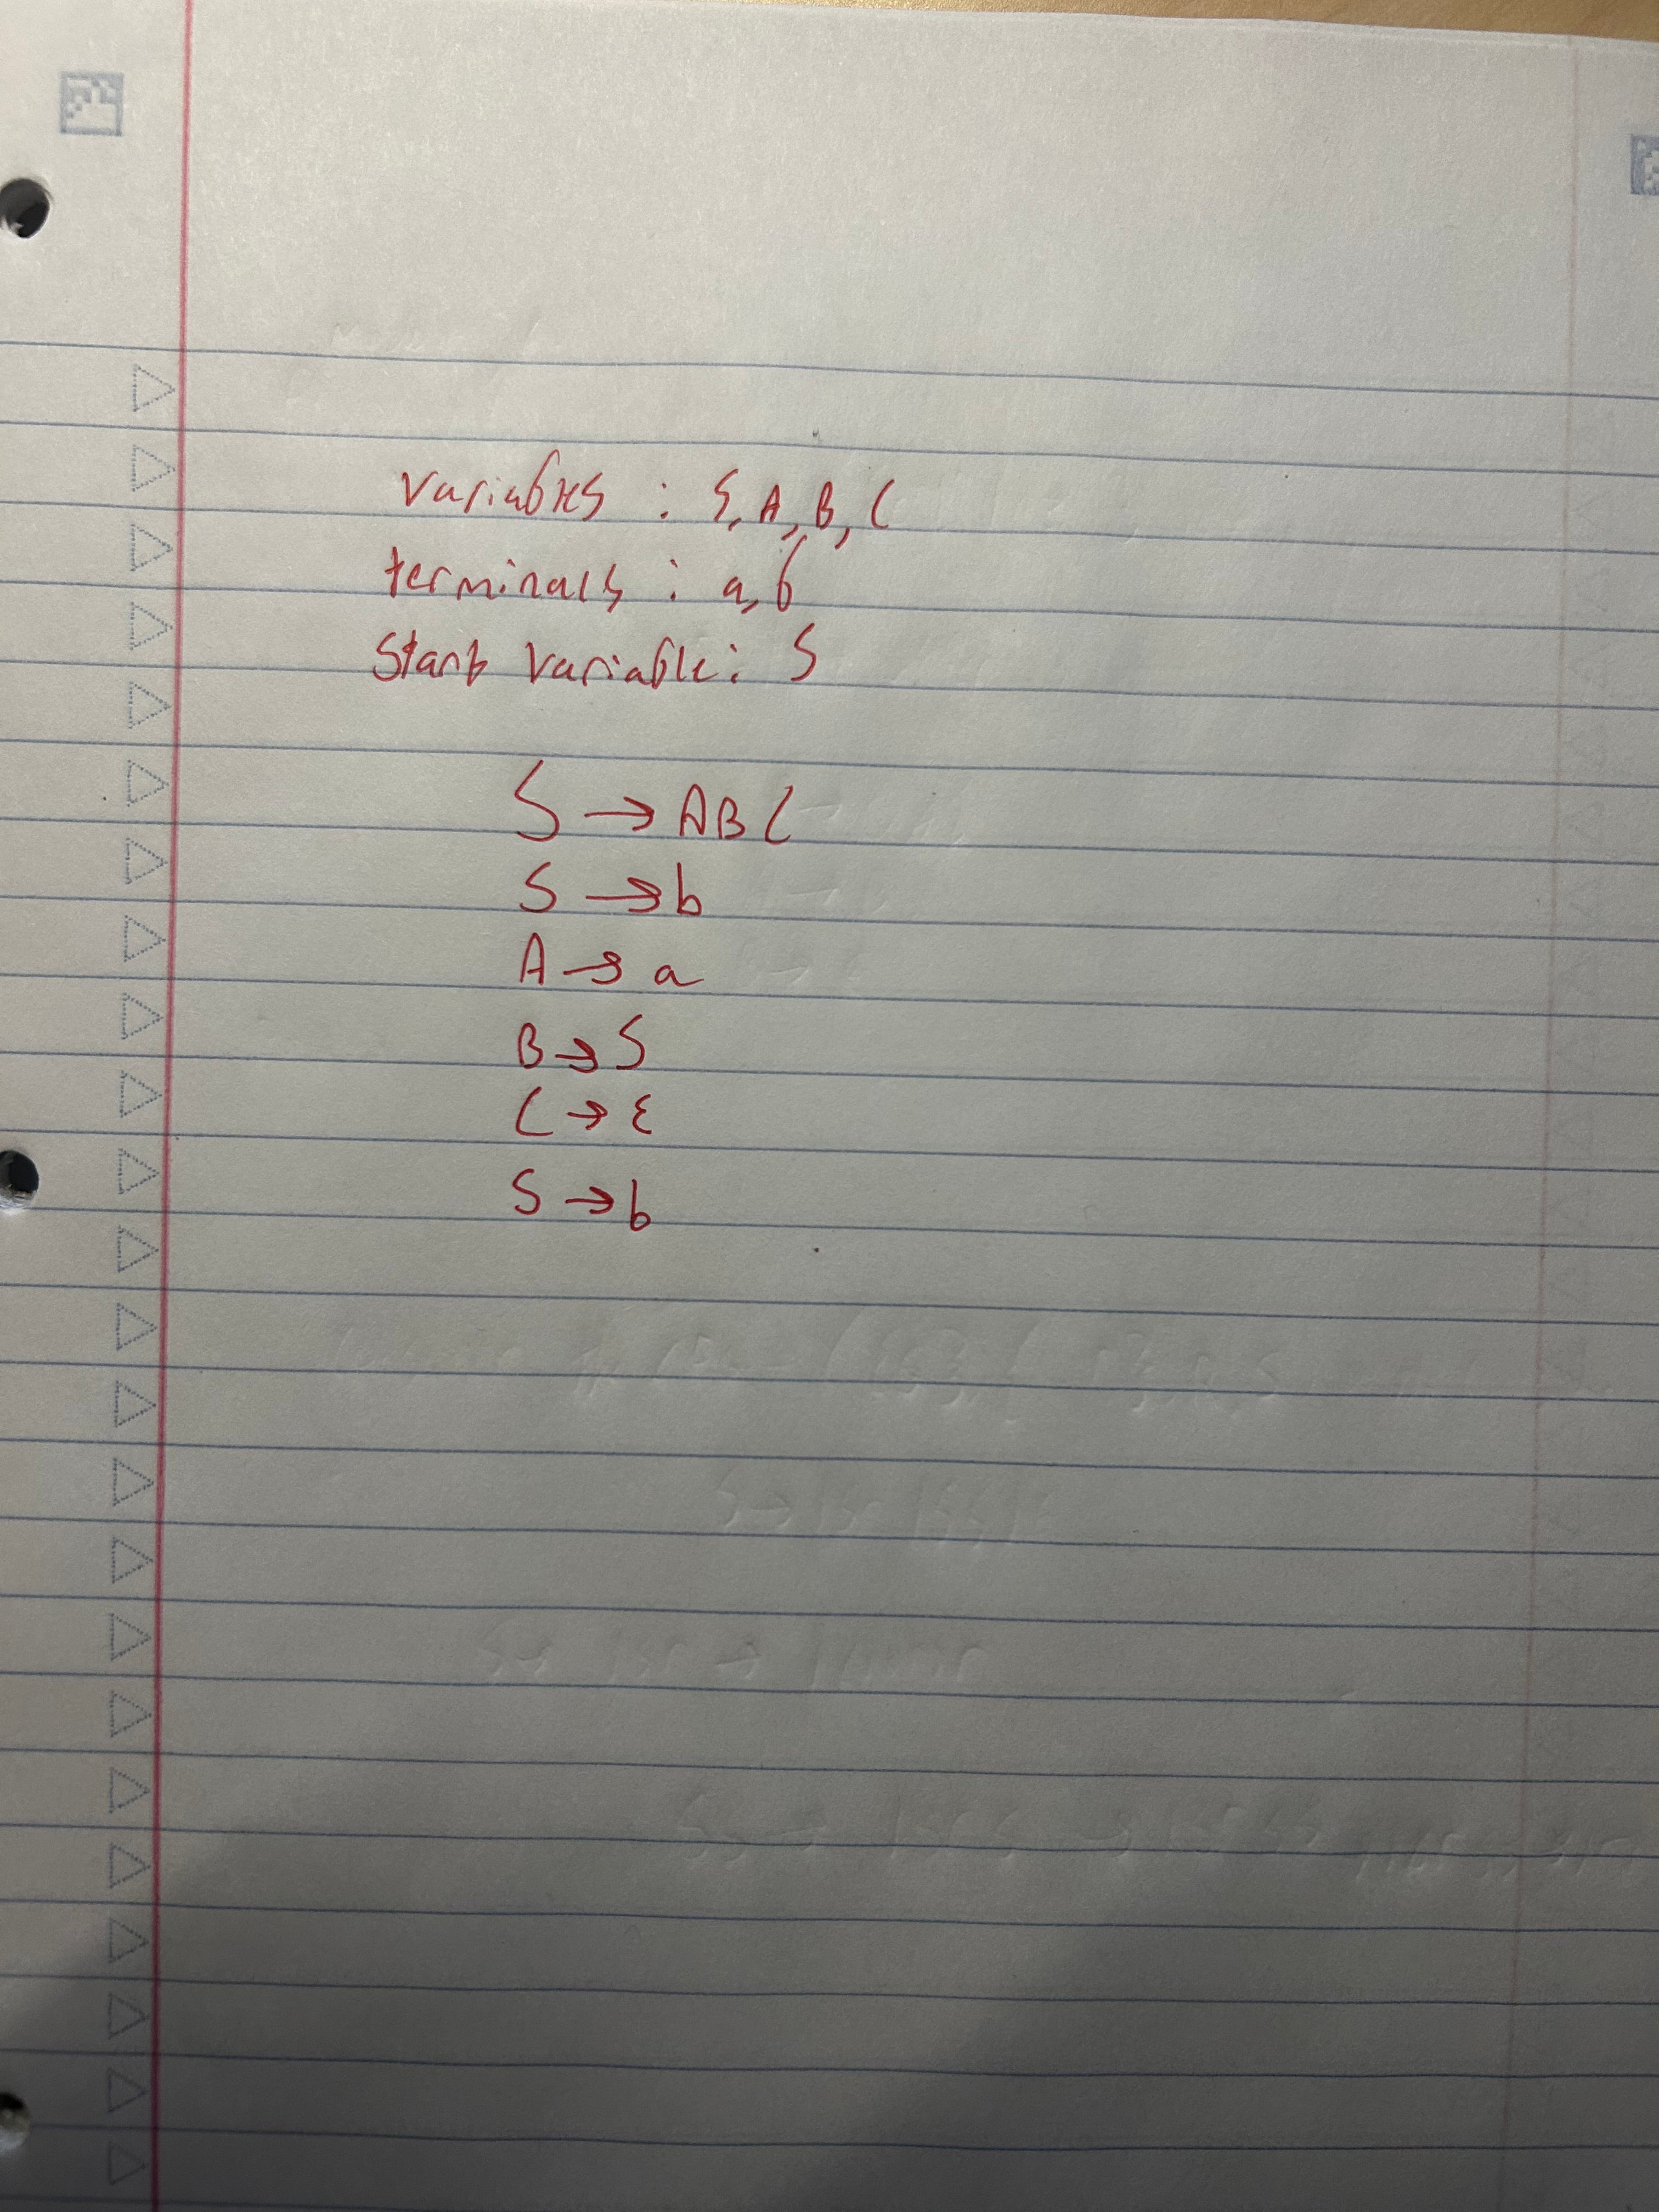 variables : S, A, B, C
terminals : a, b
Start variable: S
S → ABC
S → b
A → a
B → S
C → ε
S → b